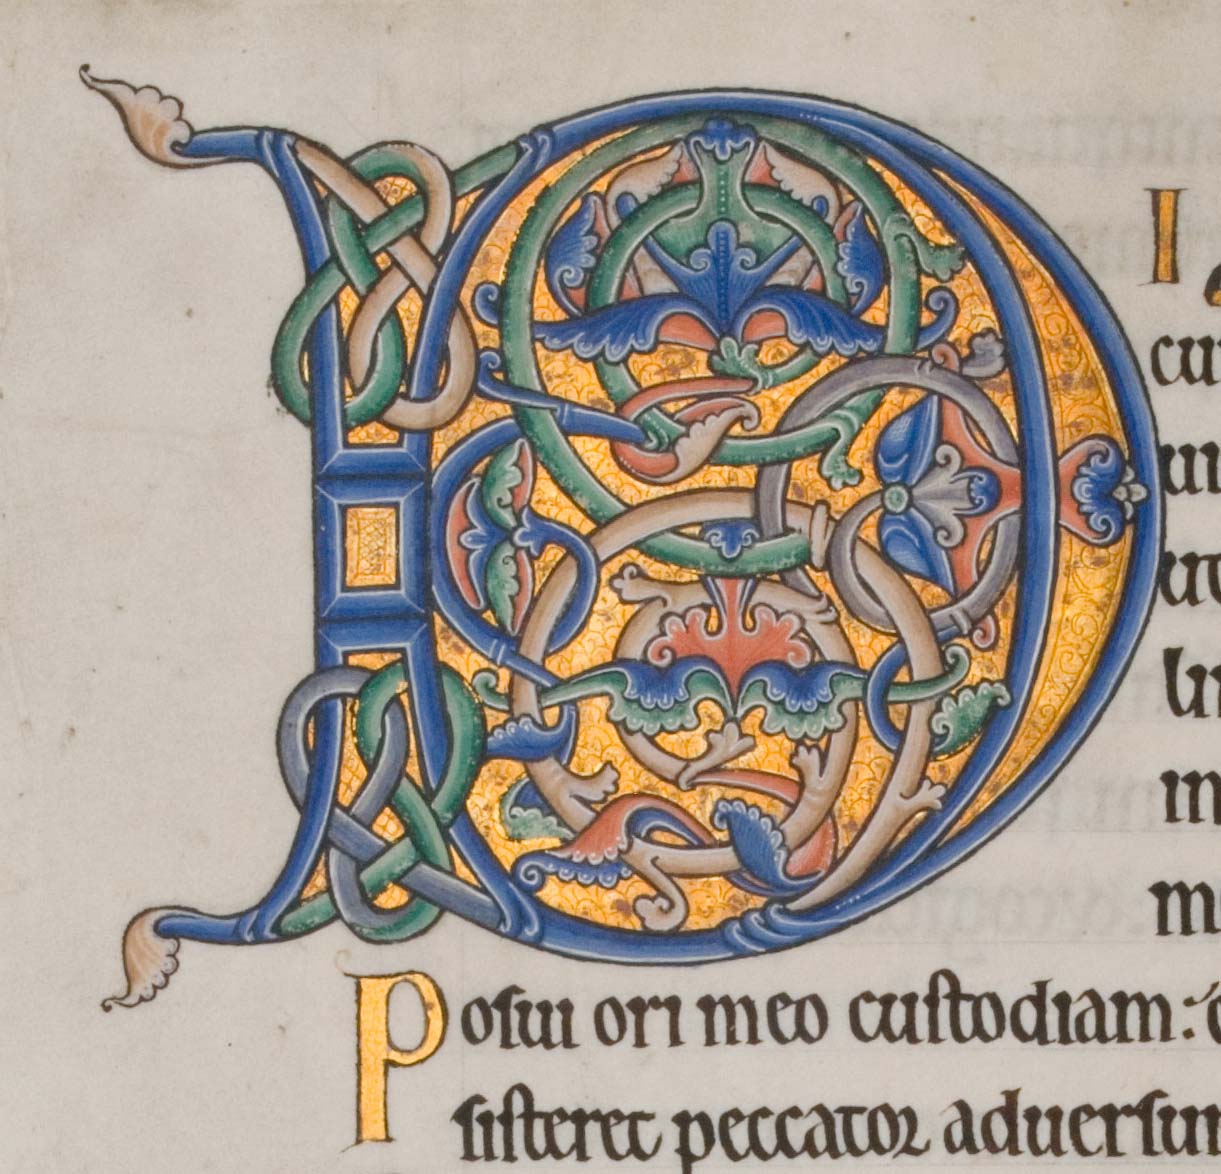 D I
cu
ui
ut
li
in
m
Poſui ori meo cuſtodiam:
siſteret peccator aduerſu